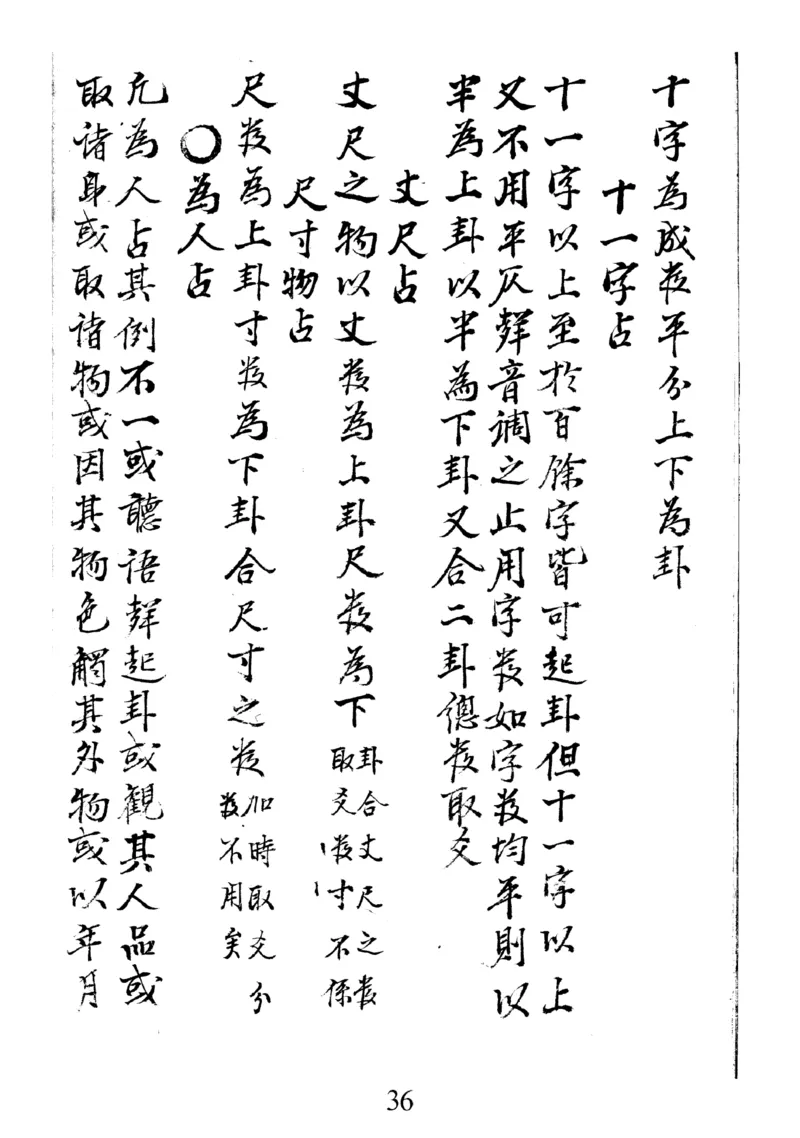 十字為成数平分上下為卦
十一字占
十一字以上至扵百餘字皆可起卦但十一字以上
又不用平仄聲音調之止用字数如字数均平則以
半為上卦以半為下卦又合二卦總数取爻
丈尺占
丈尺之物以丈数為上卦尺数為下卦合丈尺之数取爻数寸不係
尺寸物占
尺数為上卦寸数為下卦合尺寸之数加時取爻分数不用矣
○為人占
凡為人占其例不一或聽語聲起卦或觀其人品或
取諸身或取諸物或因其物色觸其外物或以年月
36